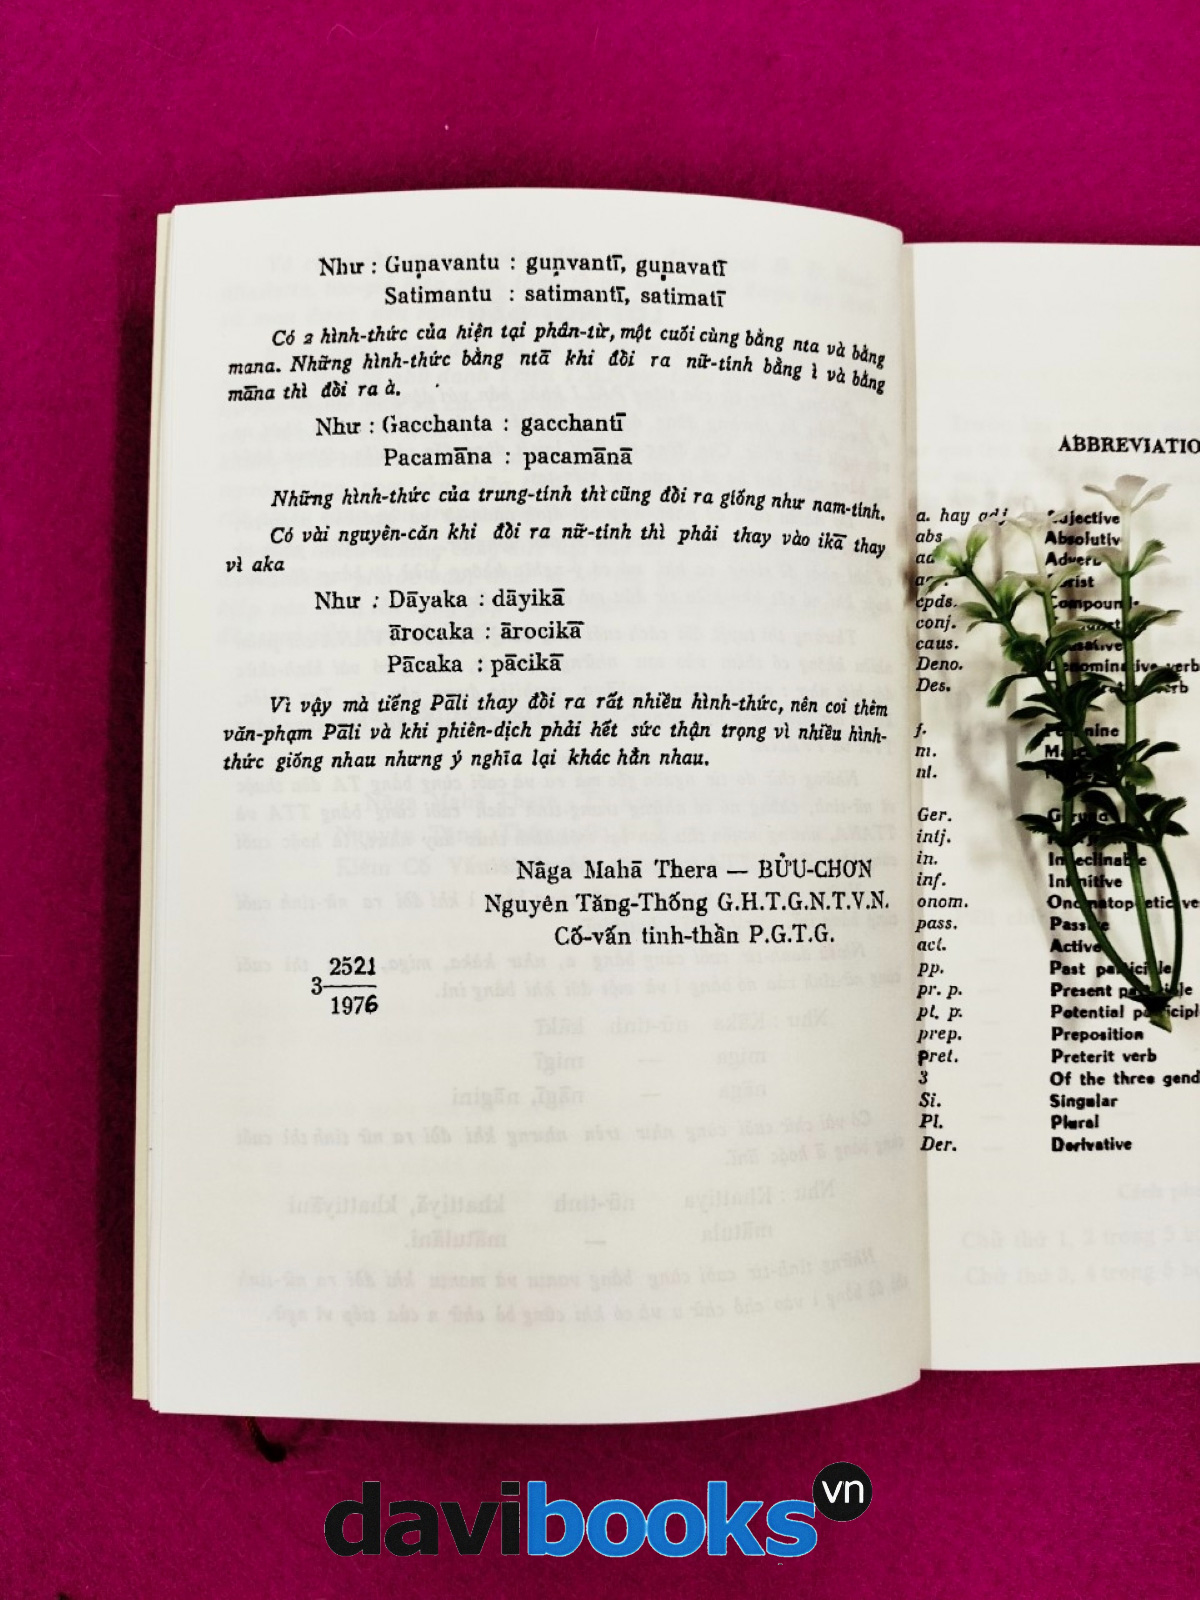 Như : Guṇavantu : guṇvantī, guṇavatī
Satimantu : satimantī, satimatī
Có 2 hình-thức của hiện tại phân-từ, một cuối cùng bằng nta và bằng
mana. Những hình-thức bằng ntā khi đồi ra nữ-tính bằng ì và bằng
māna thì đồi ra à.
Như : Gacchanta : gacchantī
Pacamāna : pacamānā
Những hình-thức của trung-tính thì cũng đồi ra giống như nam-tính.
Có vài nguyên-căn khi đồi ra nữ-tính thì phải thay vào ikā thay
vì aka
Như : Dāyaka : dāyikā
ārocaka : ārocikā
Pācaka : pācikā
Vì vậy mà tiếng Pāli thay đồi ra rất nhiều hình-thức, nên coi thêm
văn-phạm Pāli và khi phiên-dịch phải hết sức thận trọng vì nhiều hình-
thức giống nhau nhưng ý nghĩa lại khác hẳn nhau.
Nâga Mahā Thera — BỬU-CHƠN
Nguyên Tăng-Thống G.H.T.G.N.T.V.N.
Cố-vấn tinh-thần P.G.T.G.
2521
3
1976
ABBREVIATIO
a. hay adj
abs Absolutiv
Adverb
cpds. Compound
conj.
caus.
Deno. Denominative verb
Des.
f.
m.
nt.
Ger.
intj.
in. Indeclinable
inf. Infinitive
onom. Onomatopoetic ve
pass. Passive
act. Active
pp. Past participle
pr. p. Present participle
pt. p. Potential participl
prep. Preposition
pret. Preterit verb
3 Of the three gend
Si. Singular
Pl. Plural
Der. Derivative
davibooks vn